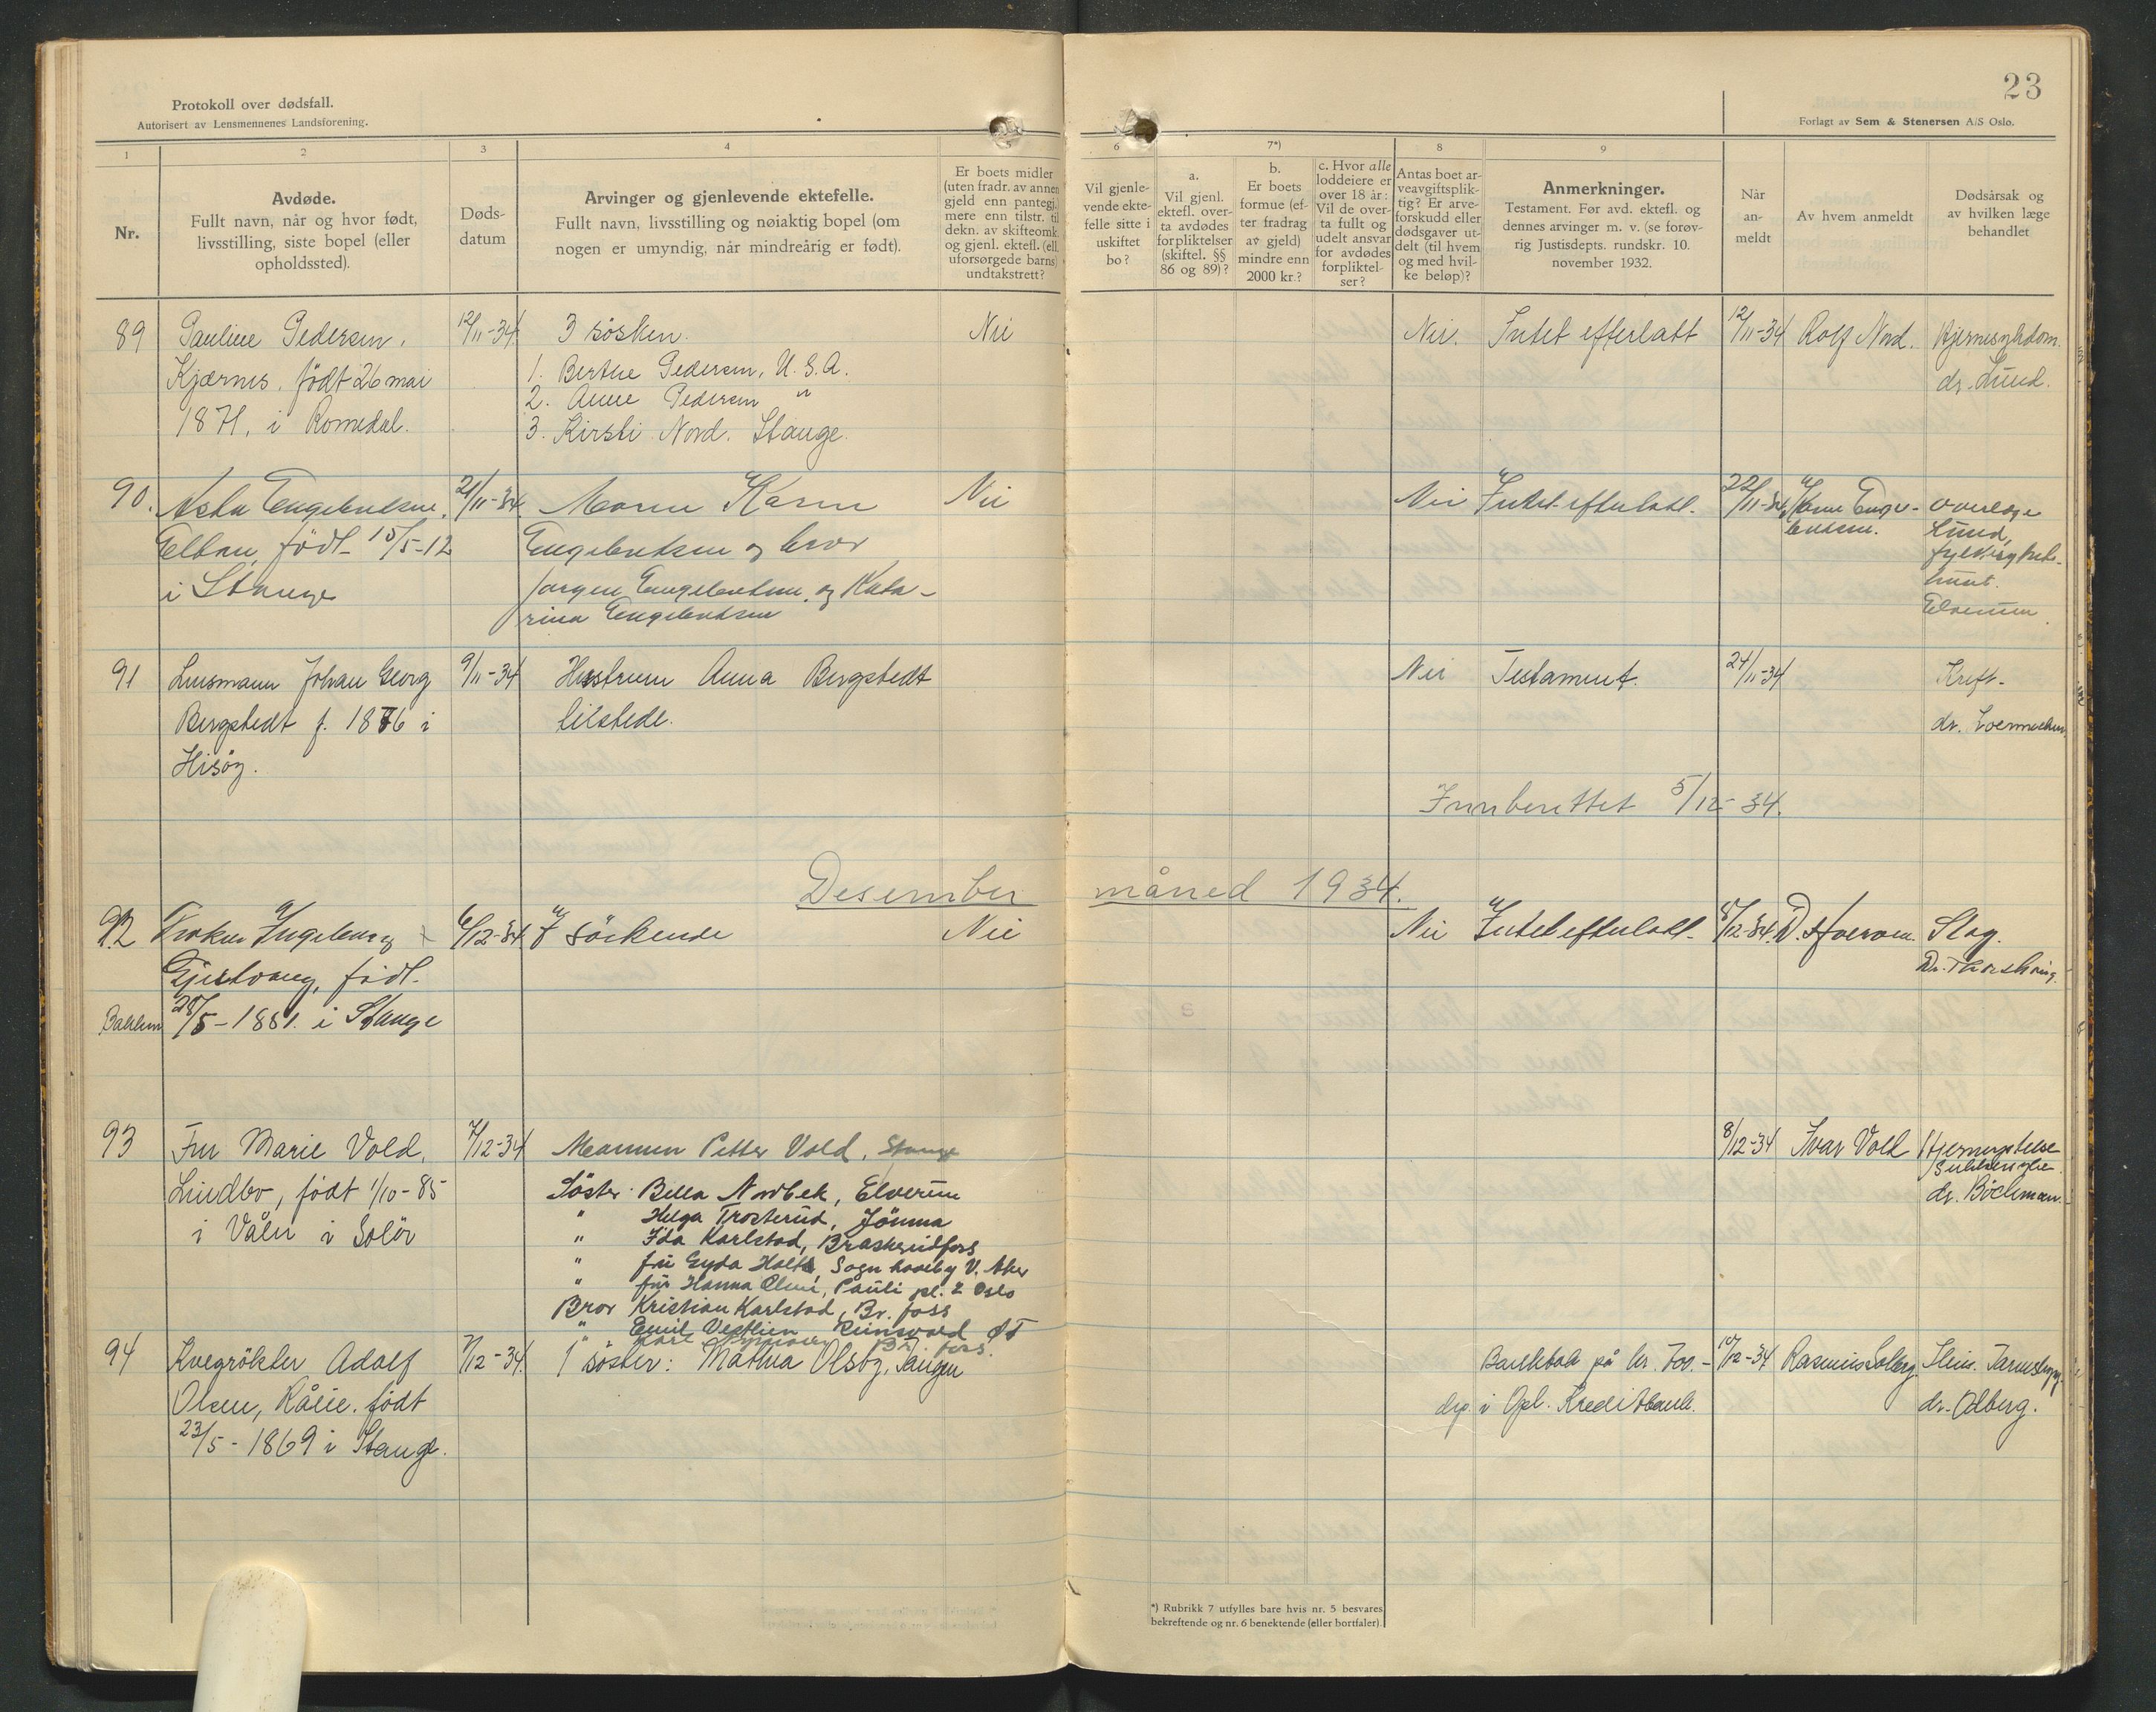 23
Protokoll over dødsfall.
Autorisert av Lensmennenes Landsforening.
Forlagt av Sem & Stenersen A/S Oslo.
1 2 3 4 5 6 7*) 8 9
Nr.
Avdøde.
Fullt navn, når og hvor født,
livsstilling, siste bopel (eller
opholdssted).
Døds-
datum
Arvinger og gjenlevende ektefelle.
Fullt navn, livsstilling og nøiaktig bopel (om
nogen er umyndig, når mindreårig er født).
Er boets midler
(uten fradr. av annen
gjeld enn pantegj.)
mere enn tilstr. til
dekn. av skifteomk.
og gjenl. ektef. (ell.
uforsørgede barns)
undtakstrett?
Vil gjenle-
vende ekte-
felle sitte i
uskiftet
bo?
a.
Vil gjenl.
ektefl. over-
ta avdødes
forpliktelser
(skiftel. §§
86 og 89)?
b.
Er boets
formue (ef-
ter fradrag
av gjeld)
mindre enn
2000 kr.?
c. Hvor alle
loddeiere er
over 18 år:
Vil de over-
ta fullt og
udelt ansvar
for avdødes
forpliktel-
ser?
Antas boet ar-
veavgiftsplik-
tig? Er arve-
forskudd eller
dødsgaver ut-
delt (til hvem
og med hvil-
ke beløp)?
Anmerkninger.
Testament. Før avd. ektefl. og
dennes arvinger m. v. (se forøv-
rig Justisdepts. rundskr. 10.
november 1932.
Når
an-
meldt
Av hvem anmeldt
Dødsårsak og
av hvilken læge
behandlet
89 Pauline Pedersen, 12/11-34 3 søsken. Nei Nei. Intet efterlatt 12/11-34 Rolf Nord. Hjernesykdom.
Kjærnes, født 26 mai 1. Berthe Pedersen, U.S.A. dr. Lund.
1871, i Romedal. 2. Anne Pedersen "
3. Kirsti Nord. Stange.
90. Asta Engebretsen, 21/11-34. Moren Karen Nei Nei Intet efterlatt. 22/11-34 Karen Enge- overlæge
født 15/5-12 Engebretsen og bror bretsen. Lund,
i Stange Jørgen Engebretsen og Kata-
rina Engebretsen Elverum.
91 Lensmann Johan Georg 9/11-34 Hustruen Anna Bergstedt Nei Testament. 24/11-34 Kreft.
Bergstedt f. 1876 i tilstede. dr.
Hisøy.
Innberettet 5/12-34.
Desember måned 1934.
92 Frøken Ingeborg 6/12-34 7 søskende Nei Nei Intet efterlatt. 8/12-34. Slag.
Gjestvang, født.
Bakken 28/5-1881. i Stange
93 Fru Marie Vold, 7/12-34 Mannen Petter Vold, Stange 8/12-34 Ivar Vold
Lindbo, født 1/10-85 Søster Bella Nordbek, Elverum Sukkersyke
i Våler i Solør " Helga Trosterud, Jømna dr. Bøckman.
" Ida Karlstad, Braskereidfoss
" fru Gyda Holt, Sogn haveby V. Aker
" fru Hanna Pauli pl. 2 Oslo
Bror Kristian Karlstad, Br. foss
" Emil Vestlien Reinsvold ØT
" Br. foss.
94 Kvegrøkter Adolf 7/12-34. 1 søster: Mathea Olsby, Tangen Bankbok på kr. 700.- 10/12-34 Rasmus Solberg.
Olsen, født i Opl. Kreditbank. dr. Ødberg.
23/5-1869 i Stange.
*) Rubrikk 7 utfylles bare hvis nr. 5 besvares
bekreftende og nr. 6 benektende (eller bortfaler).